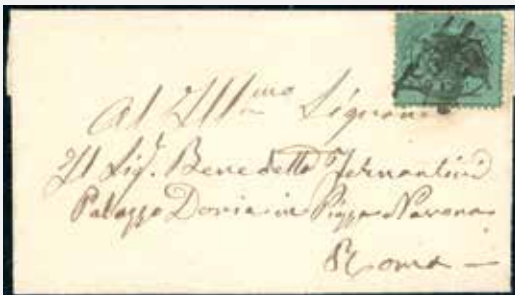 Al Ill.mo Signore
Il Sig.r Benedetto
Palazzo Doria in Piazza Navona
Roma